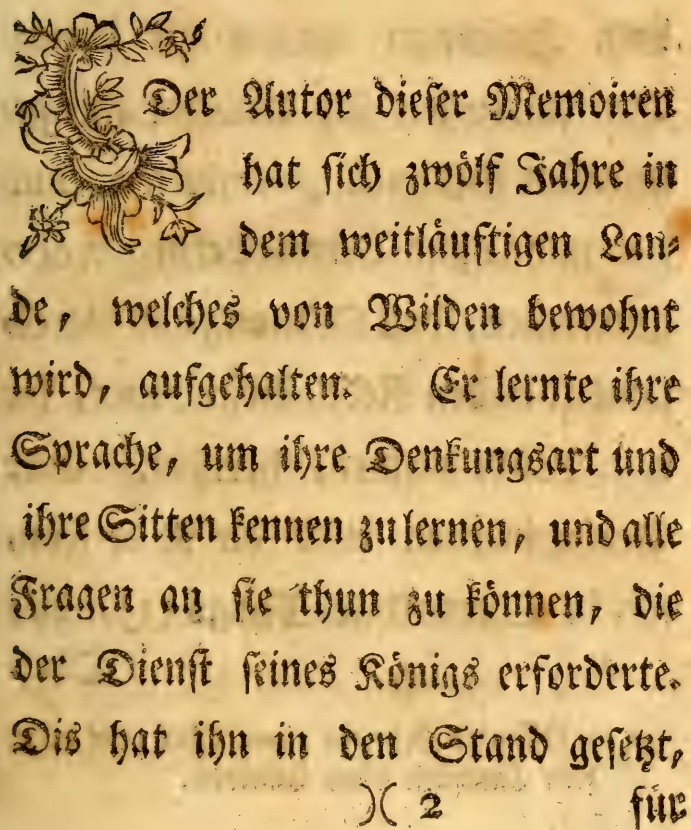 Der Autor dieser Memoiren
hat sich zwölf Jahre in
dem weitläuftigen Lan-
de, welches von Wilden bewohnt
wird, aufgehalten. Er lernte ihre
Sprache, um ihre Denkungsart und
ihre Sitten kennen zu lernen, und alle
Fragen an sie thun zu können, die
der Dienst seines Königs erforderte.
Dis hat ihn in den Stand gesetzt,
)( 2 für